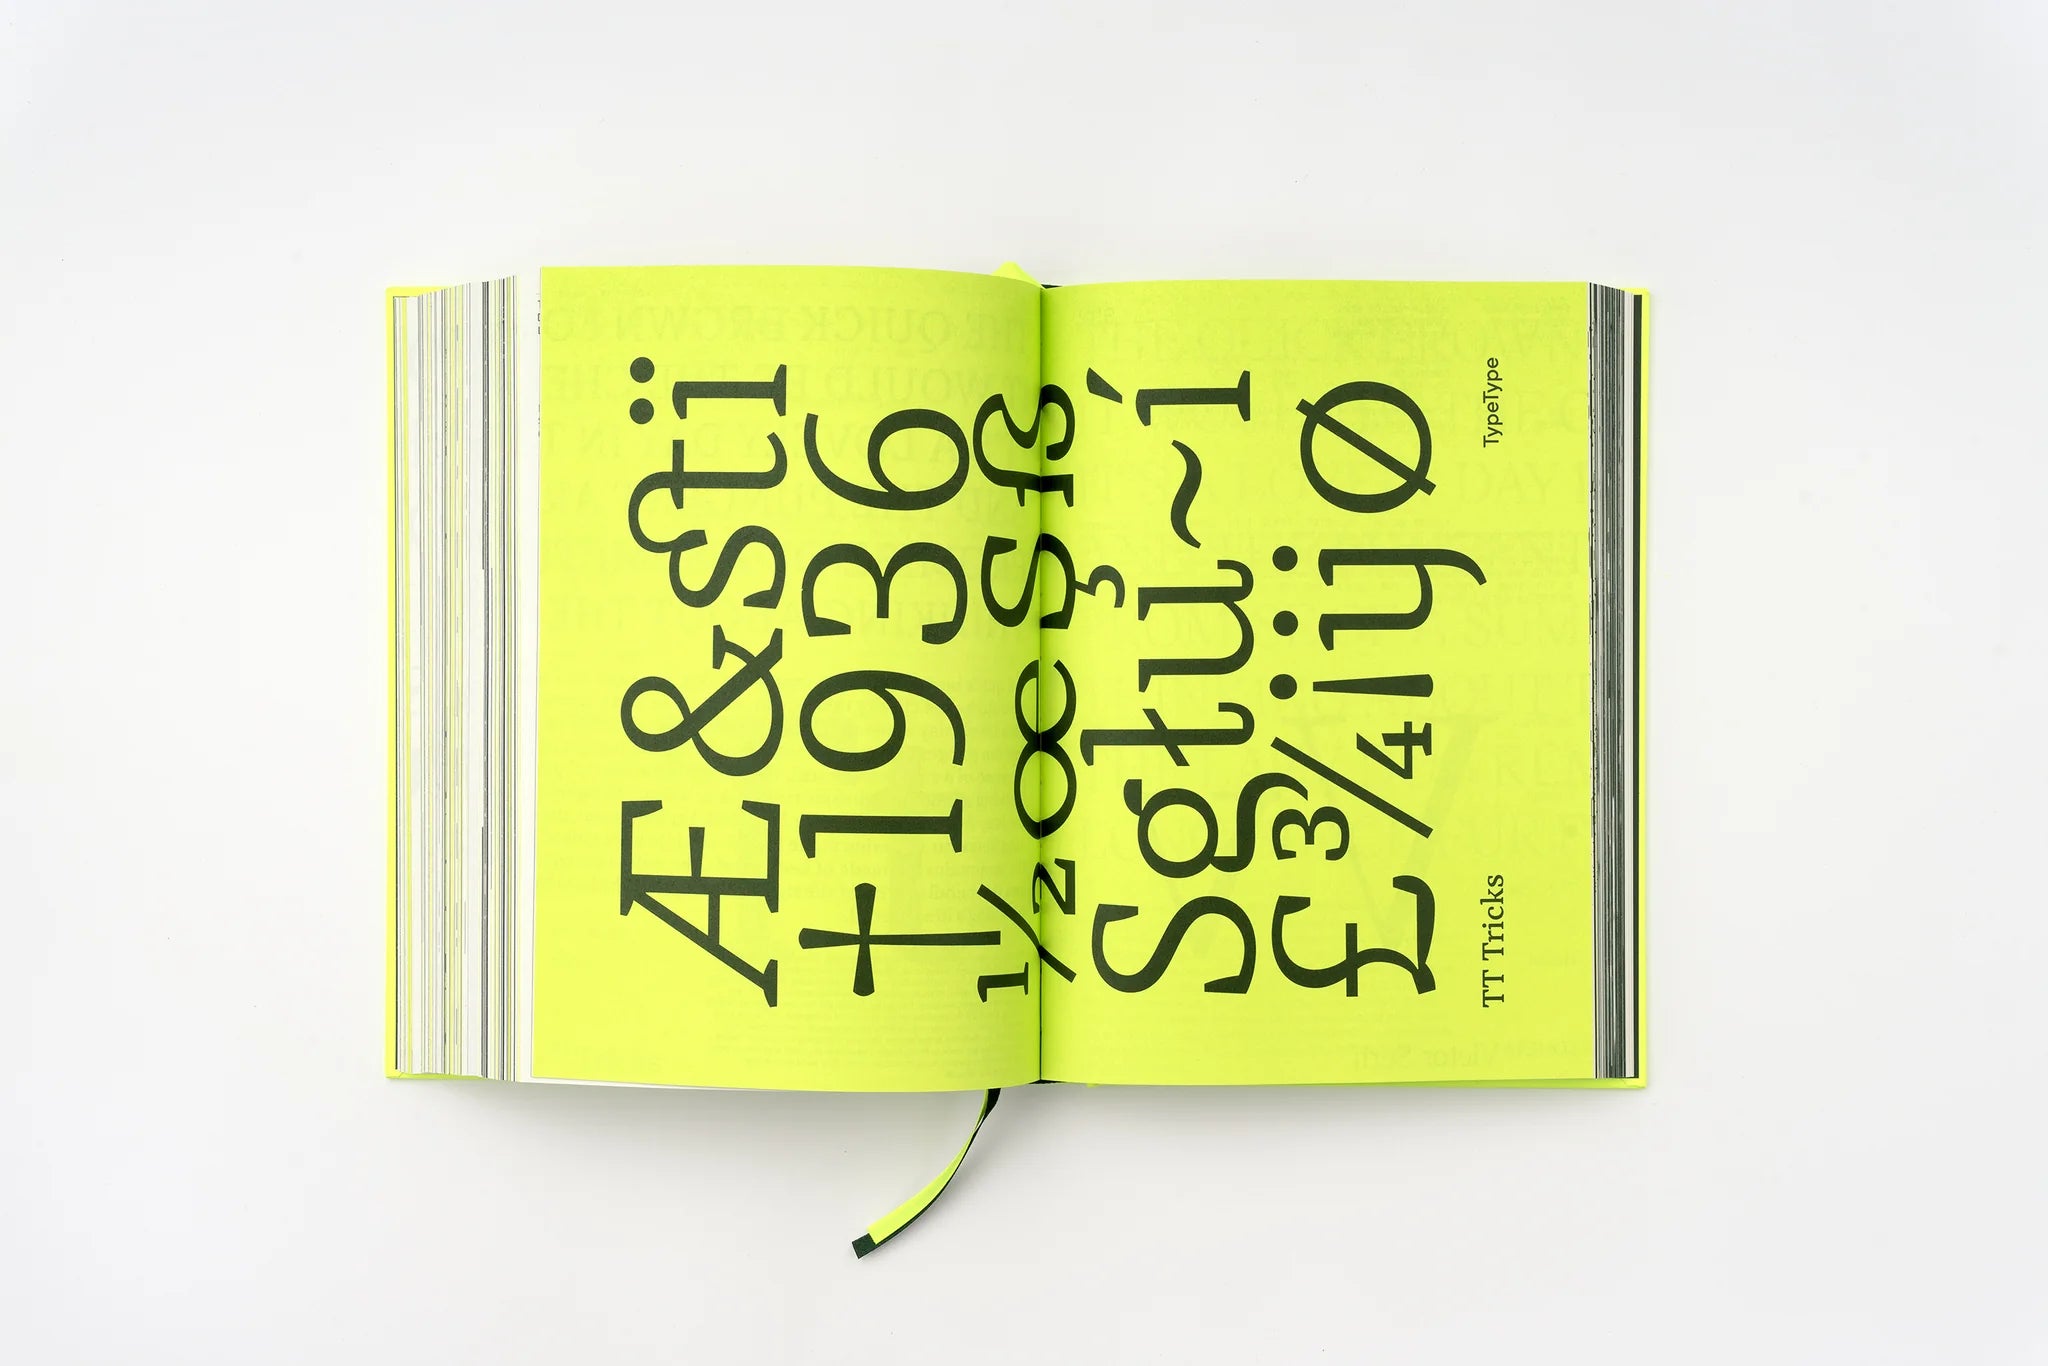 Æ&stï
†1936
½œŞß
Sgłu~í
£¾¡ÿ∅
TT Tricks
TypeType